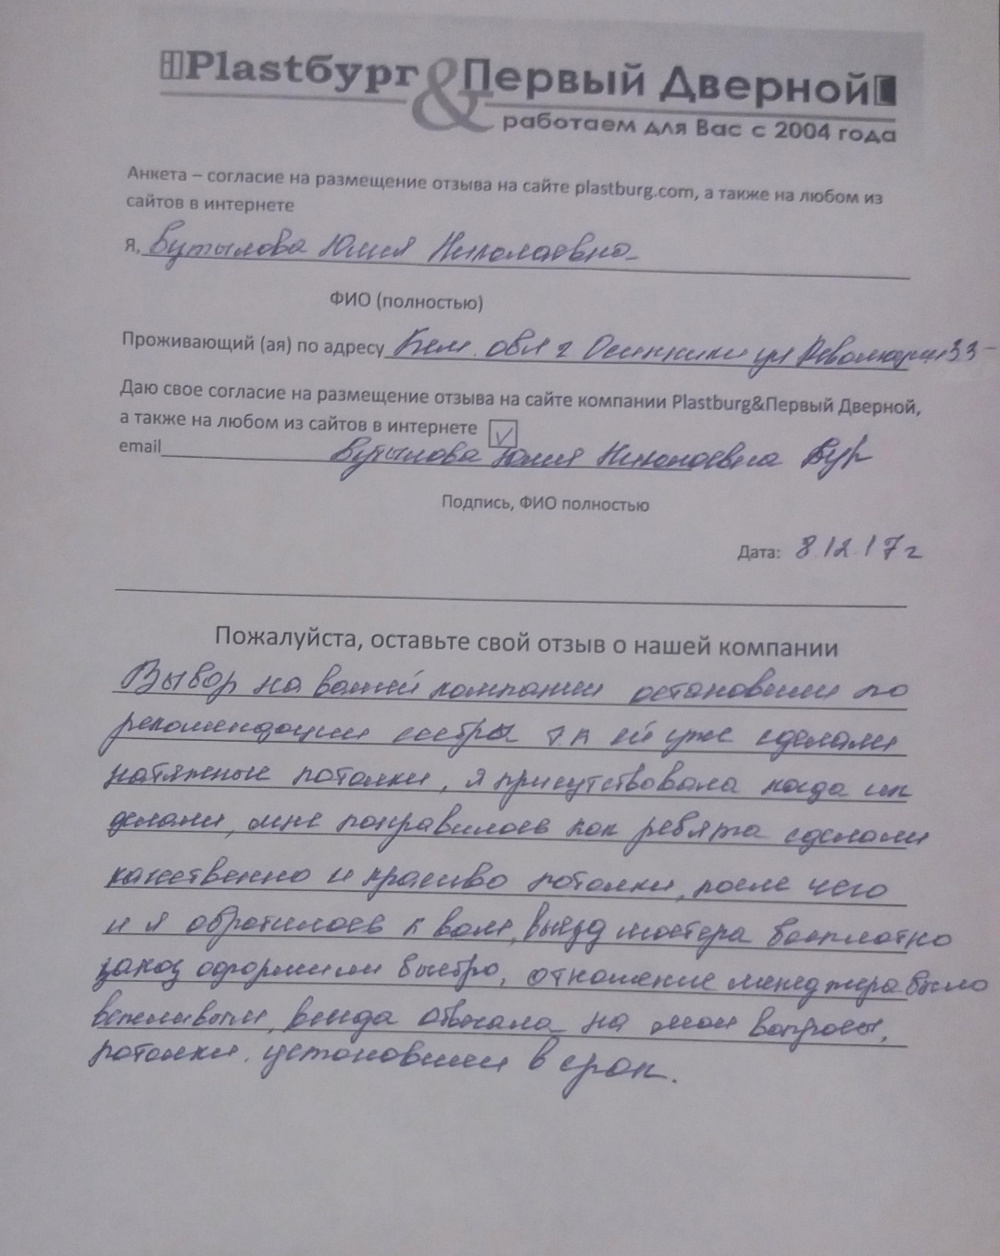 Plastбург & Первый Дверной
работаем для Вас с 2004 года
Анкета – согласие на размещение отзыва на сайте plastburg.com, а также на любом из
сайтов в интернете
Я, Бутылова Юлия Николаевна
ФИО (полностью)
Проживающий (ая) по адресу Кем. обл г Осинники ул Революции 33
Даю свое согласие на размещение отзыва на сайте компании Plastburg&Первый Дверной,
а также на любом из сайтов в интернете
email Бутылова Юлия Николаевна
Подпись, ФИО полностью
Дата: 8.12.17г
Пожалуйста, оставьте свой отзыв о нашей компании
Выбор на вашей компании остановили по
рекомендации сестры т.к ей уже сделали
натяжные потолки, я присутствовала когда их
делали, мне понравилось как ребята сделали
качественно и красиво потолки, после чего
и я обратилась к вам, выезд мастера бесплатно
заказ оформили быстро, отношение менеджера было
вежливым, всегда отвечала на мои вопросы,
потолки установили в срок.